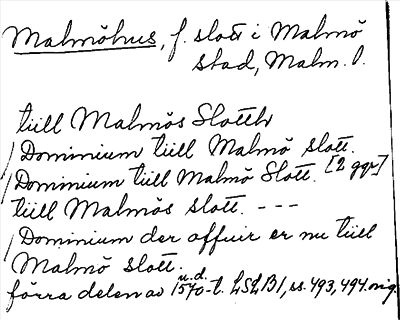 Malmöhus, f. slott i Malmö
stad, Malm. l.
till Malmös Slotth
/ Dominium tüll Malmö slott.
/ Dominium tüll Malmö Slott. [2 ggr]
tüll Malmös slott. ---
/ Dominium der affuir er nu tüll
Malmö slott.
u.d.
förra delen av 1570-t. LSLB1, ss. 493, 494. orig.